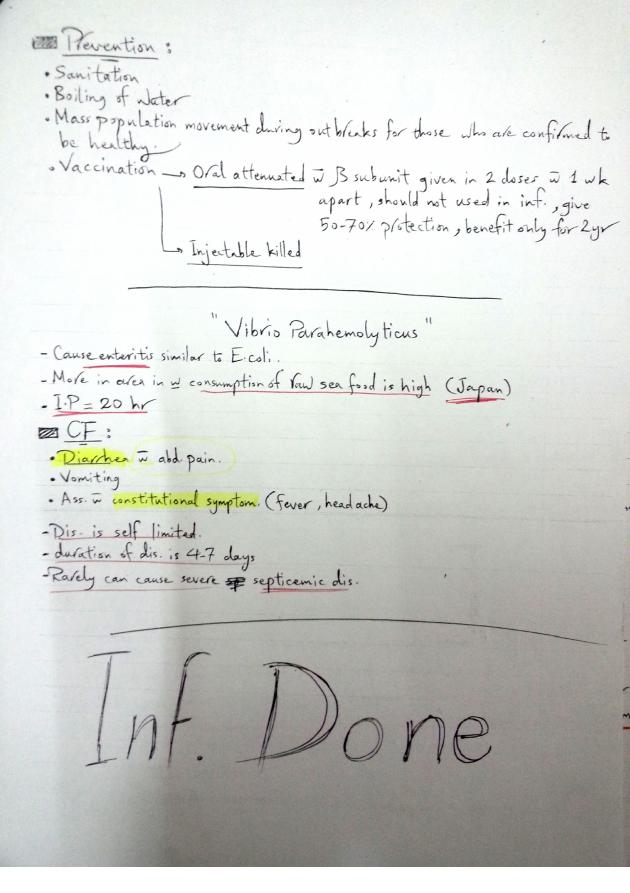 Prevention :
• Sanitation
• Boiling of Water
• Mass population movement during outbreaks for those who are confirmed to
be healthy.
• Vaccination → Oral attenuated w̄ β subunit given in 2 doses w̄ 1 wk
apart, should not used in inf., give
50-70% protection, benefit only for 2yr
→ Injectable killed
"Vibrio Parahemolyticus"
- Cause enteritis similar to E.coli.
- More in area in w consumption of raw sea food is high (Japan)
- I.P = 20 hr
CF :
• Diarrhea w̄ abd pain.
• Vomiting
• Ass. w̄ constitutional symptom. (fever, headache)
- Dis. is self limited.
- duration of dis. is 4-7 days
- Rarely can cause severe septicemic dis.
Inf. Done